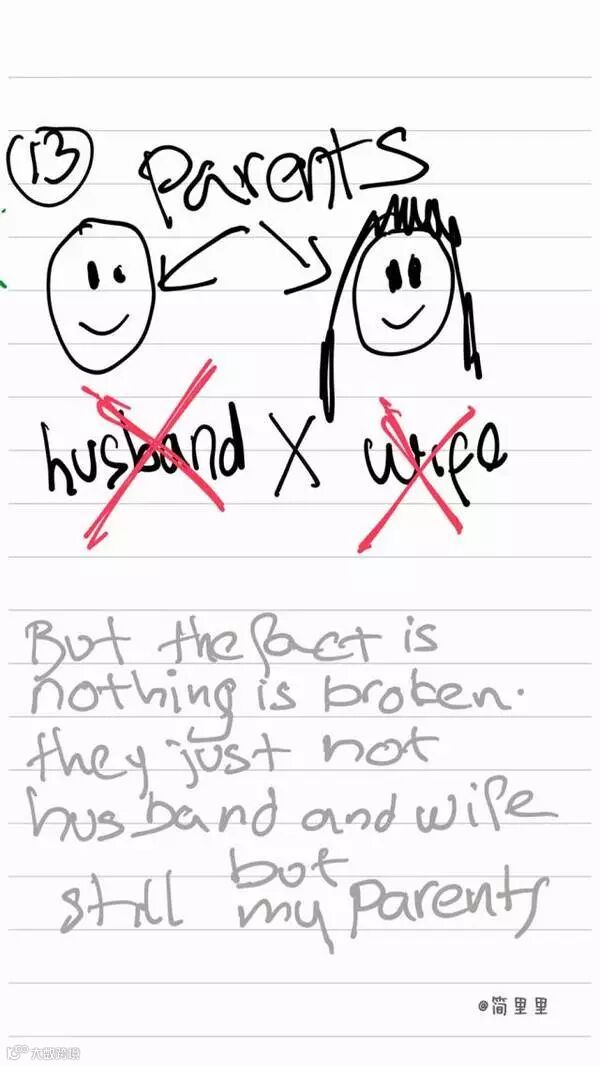 13 parents
husband X wife
But the fact is
nothing is broken.
they just not
husband and wife
but
still my parents
@简里里
大数跨境